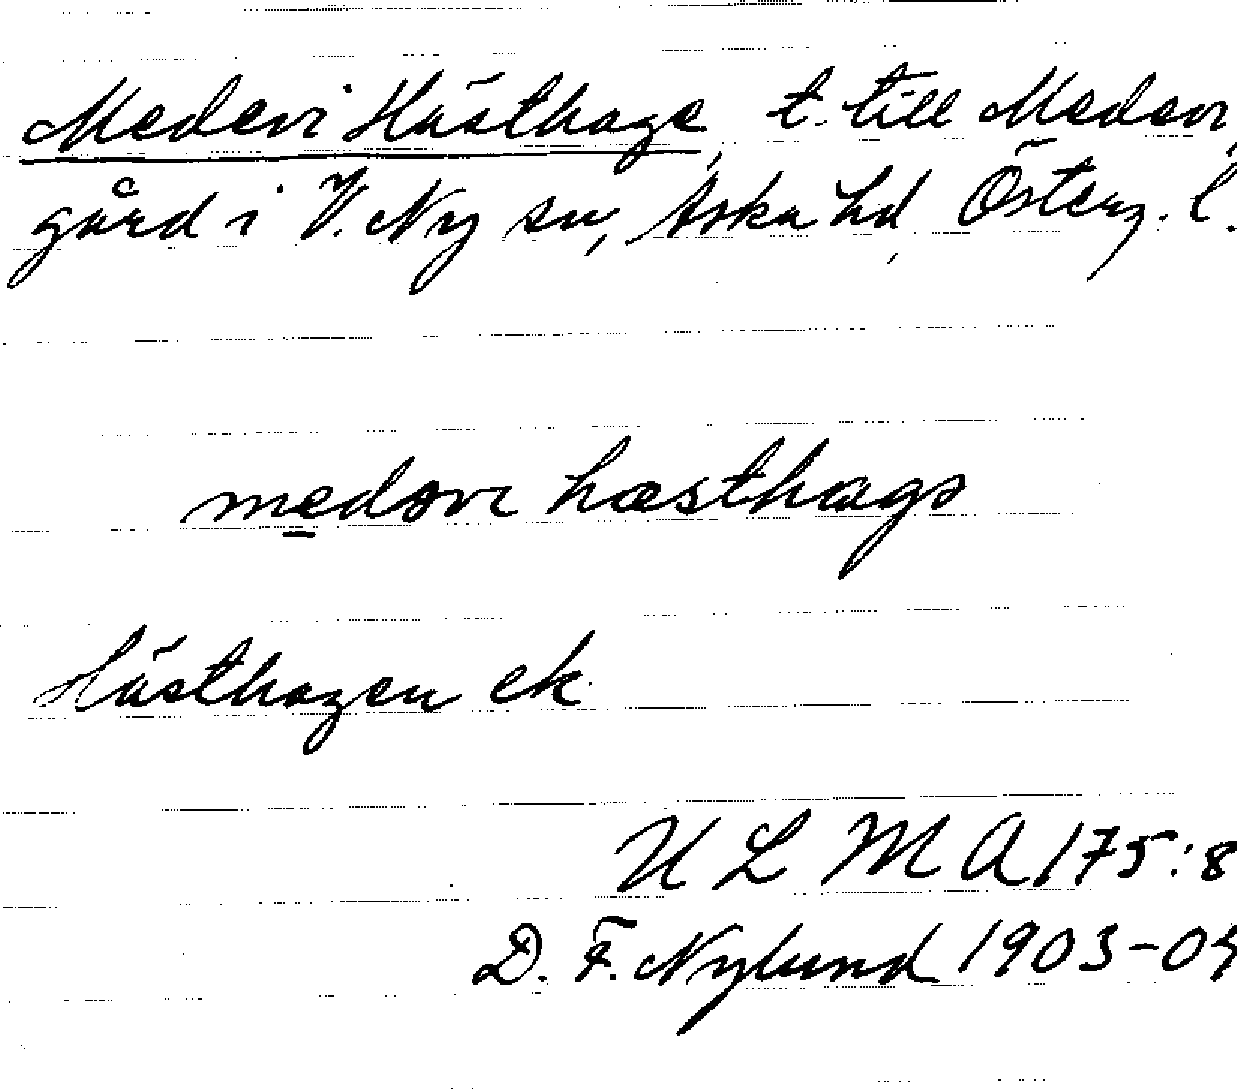 Medevi Hästhage, t. till Medevi
gård i V. Ny sn, Aska hd, Österg. l.
medəvi hæsthagə
Hästhagen ek
ULMA 175:8
D. F. Nylund 1903-04